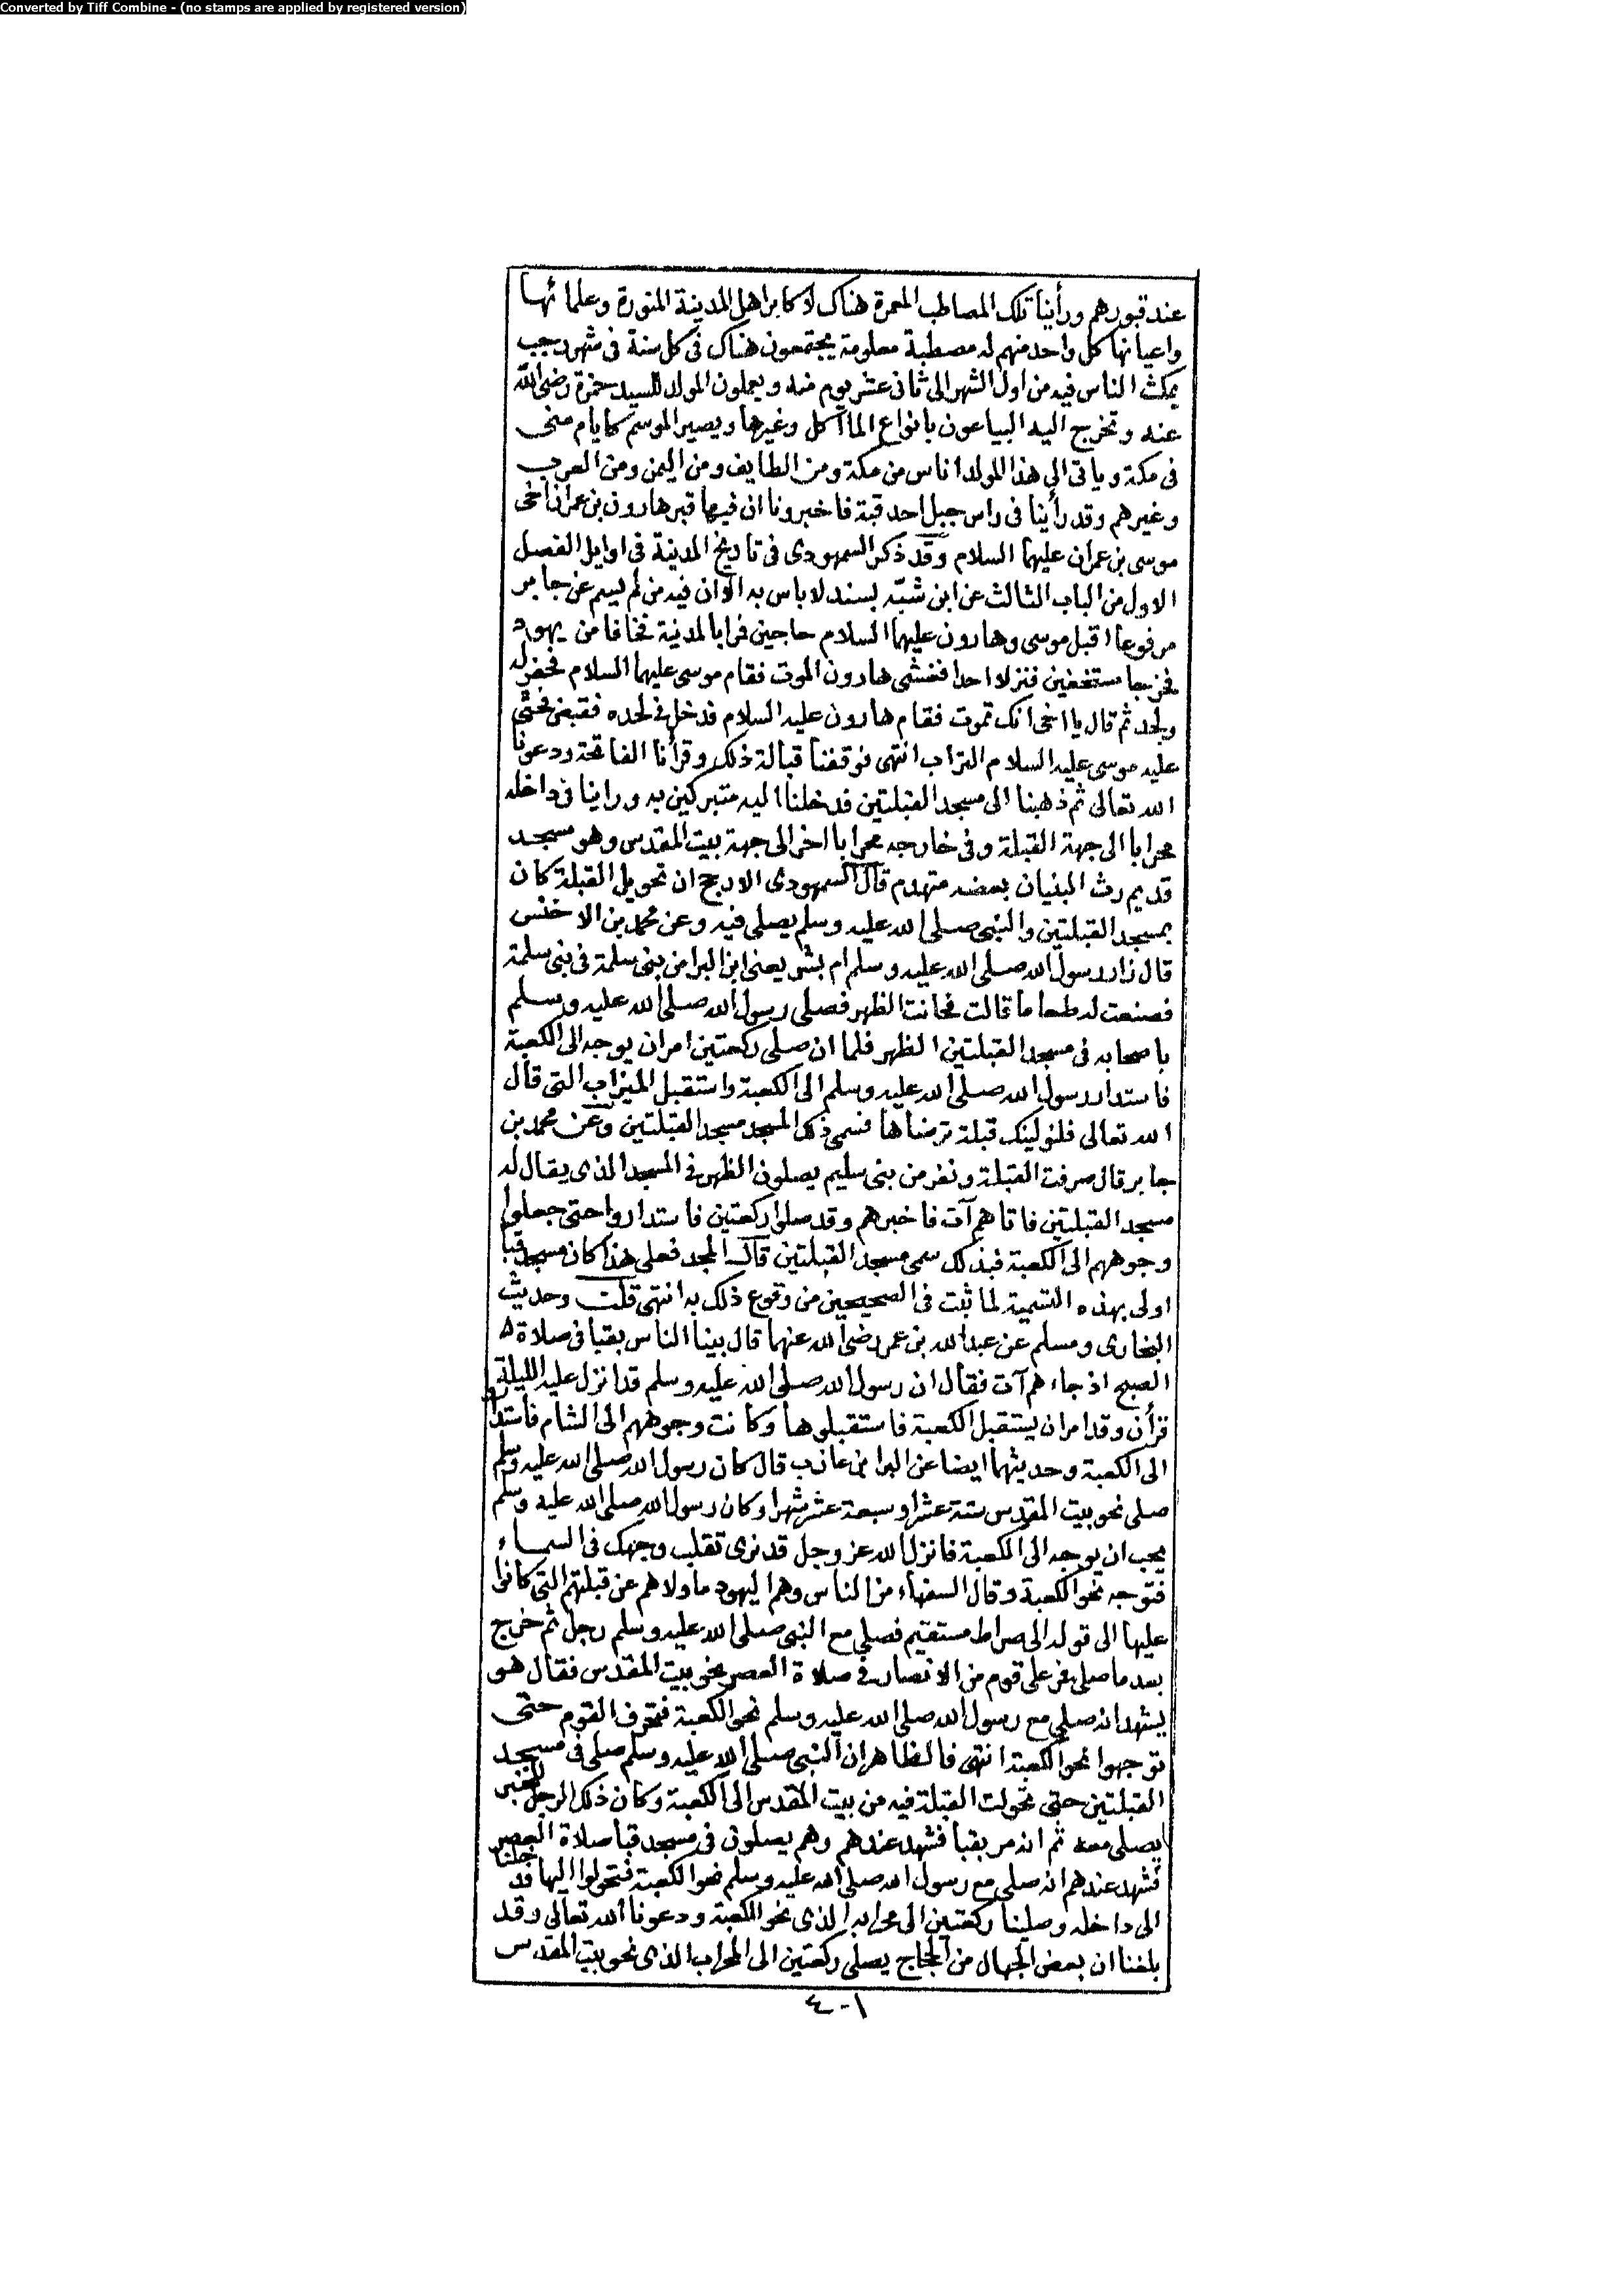 Converted by Tiff Combine - (no stamps are applied by registered version)
عند قبورهم ورأينا تلك المصاطب المعمرة هناك لاكابر اهل المدينة المنورة وعلمائها
واعيانها كل واحد منهم له مصطبة معلومة يجتمعون هناك فى كل سنة فى شهر رجب
يمكث الناس فيه من اول الشهر الى ثانى عشر يوم منه ويعملون المولد للسيد حمزة رضى الله
عنه وتخرج اليه البياعون بانواع المآكل وغيرها ويصير الموسم كايام منى
فى مكة وياتى الى هذا المولد اناس من مكة ومن الطايف ومن اليمن ومن العرب
وغيرهم وقد رأينا فى راس جبل احد قبة فاخبرونا ان فيها قبر هارون بن عمران اخى
موسى بن عمران عليهما السلام وقد ذكر السمهودى فى تاريخ المدينة فى اوايل الفصل
الاول من الباب الثالث عن ابن شبّه بسند لاباس به الا ان فيه من لم يسم عن جابر
مرفوعا اقبل موسى وهارون عليهما السلام حاجين فمرا بالمدينة فخافا من يهود
فخرجا مستخفين فنزلا احدا فغشى هارون الموت فقام موسى عليهما السلام فحفر له
ولحد ثم قال يا اخى انك تموت فقام هارون عليه السلام فدخل فى لحده فقبض فحثى
عليه موسى عليه السلام التراب انتهى فوقفنا قبالة ذلك وقرأنا الفاتحة ودعونا
الله تعالى ثم ذهبنا الى مسجد القبلتين فدخلنا اليه متبركين به وراينا فى داخله
محرابا الى جهة القبلة وفى خارجه محرابا اخر الى جهة بيت المقدس وهو مسجد
قديم رث البنيان بعضه متهدم قال السمهودى الارجح ان تحويل القبلة كان
بمسجد القبلتين والنبى صلى الله عليه وسلم يصلى فيه وعن محمد بن الاخنس
قال زار رسول الله صلى الله عليه وسلم ام بشر يعنى ابن البرا من بنى سلمة فى بنى سلمة
فصنعت له طعاما قالت فحانت الظهر فصلى رسول الله صلى الله عليه وسلم
باصحابه فى مسجد القبلتين الظهر فلما ان صلى ركعتين امر ان يوجه الى الكعبة
فاستدار رسول الله صلى الله عليه وسلم الى الكعبة واستقبل الميزاب التى قال
الله تعالى فلنولينك قبلة ترضاها فسمى ذلك المسجد مسجد القبلتين وعن محمد بن
جابر قال صرفت القبلة ونفر من بنى سليم يصلون الظهر فى المسجد الذى يقال له
مسجد القبلتين فاتاهم آت فاخبرهم وقد صلوا ركعتين فاستداروا حتى جعلوا
وجوههم الى الكعبة فبذلك سمى مسجد القبلتين قال المجد فعلى هذا كان مسجد قبا
اولى بهذه التسمية لما ثبت فى الصحيحين من وقوع ذلك به انتهى قلت وحديث
البخارى ومسلم عن عبد الله بن عمر رضى الله عنهما قال بينا الناس بقبا فى صلاة
الصبح اذ جاءهم آت فقال ان رسول الله صلى الله عليه وسلم قد انزل عليه الليلة
قرأن وقد امر ان يستقبل الكعبة فاستقبلوها وكانت وجوههم الى الشام فاستداروا
الى الكعبة وحديثهما ايضا عن البرا بن عازب قال كان رسول الله صلى الله عليه وسلم
صلى نحو بيت المقدس ستة عشر او سبعة عشر شهرا وكان رسول الله صلى الله عليه وسلم
يحب ان يوجه الى الكعبة فانزل الله عز وجل قد نرى تقلب وجهك فى السماء
فتوجه نحو الكعبة وقال السفهاء من الناس وهم اليهود ما ولاهم عن قبلتهم التى كانوا
عليها الى قوله الى صراط مستقيم فصلى مع النبى صلى الله عليه وسلم رجل ثم خرج
بعد ما صلى فمر على قوم من الانصار فى صلاة العصر نحو بيت المقدس فقال هو
يشهد انه صلى مع رسول الله صلى الله عليه وسلم نحو الكعبة فتحرف القوم حتى
توجهوا نحو الكعبة انتهى فالظاهر ان النبى صلى الله عليه وسلم صلى فى مسجد
القبلتين حتى تحولت القبلة فيه من بيت المقدس الى الكعبة وكان ذلك الرجل المخبر
يصلى معه ثم انه مر بقبا فشهد عندهم وهم يصلون فى مسجد قبا صلاة العصر
فشهد عندهم انه صلى مع رسول الله صلى الله عليه وسلم نحو الكعبة فتحولوا اليها فدخلنا
الى داخله وصلينا ركعتين الى محرابه الذى نحو الكعبة ودعونا الله تعالى وقد
بلغنا ان بعض الجهال من الحجاج يصلى ركعتين الى المحراب الذى نحو بيت المقدس
٤٠١